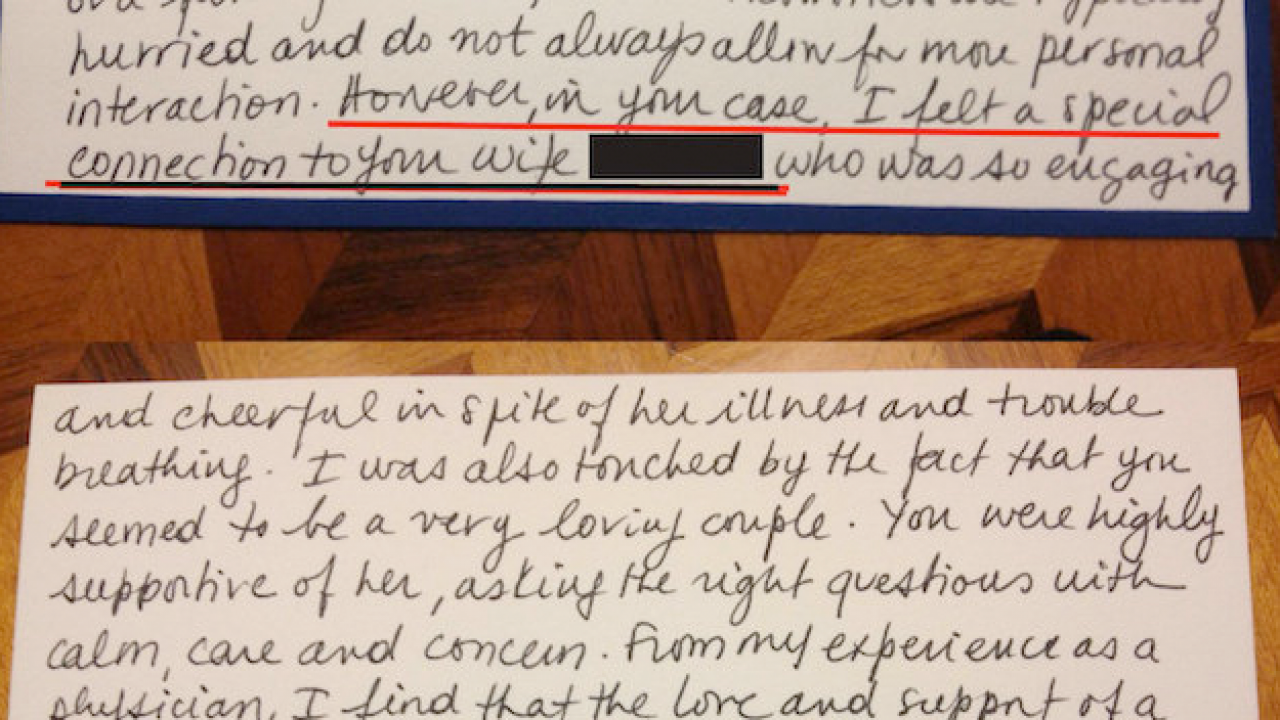 hurried and do not always allow for more personal
interaction. However, in your case, I felt a special
connection to your wife who was so engaging
and cheerful in spite of her illness and trouble
breathing. I was also touched by the fact that you
seemed to be a very loving couple. You were highly
supportive of her, asking the right questions with
calm, care and concern. From my experience as a
physician, I find that the love and support of a